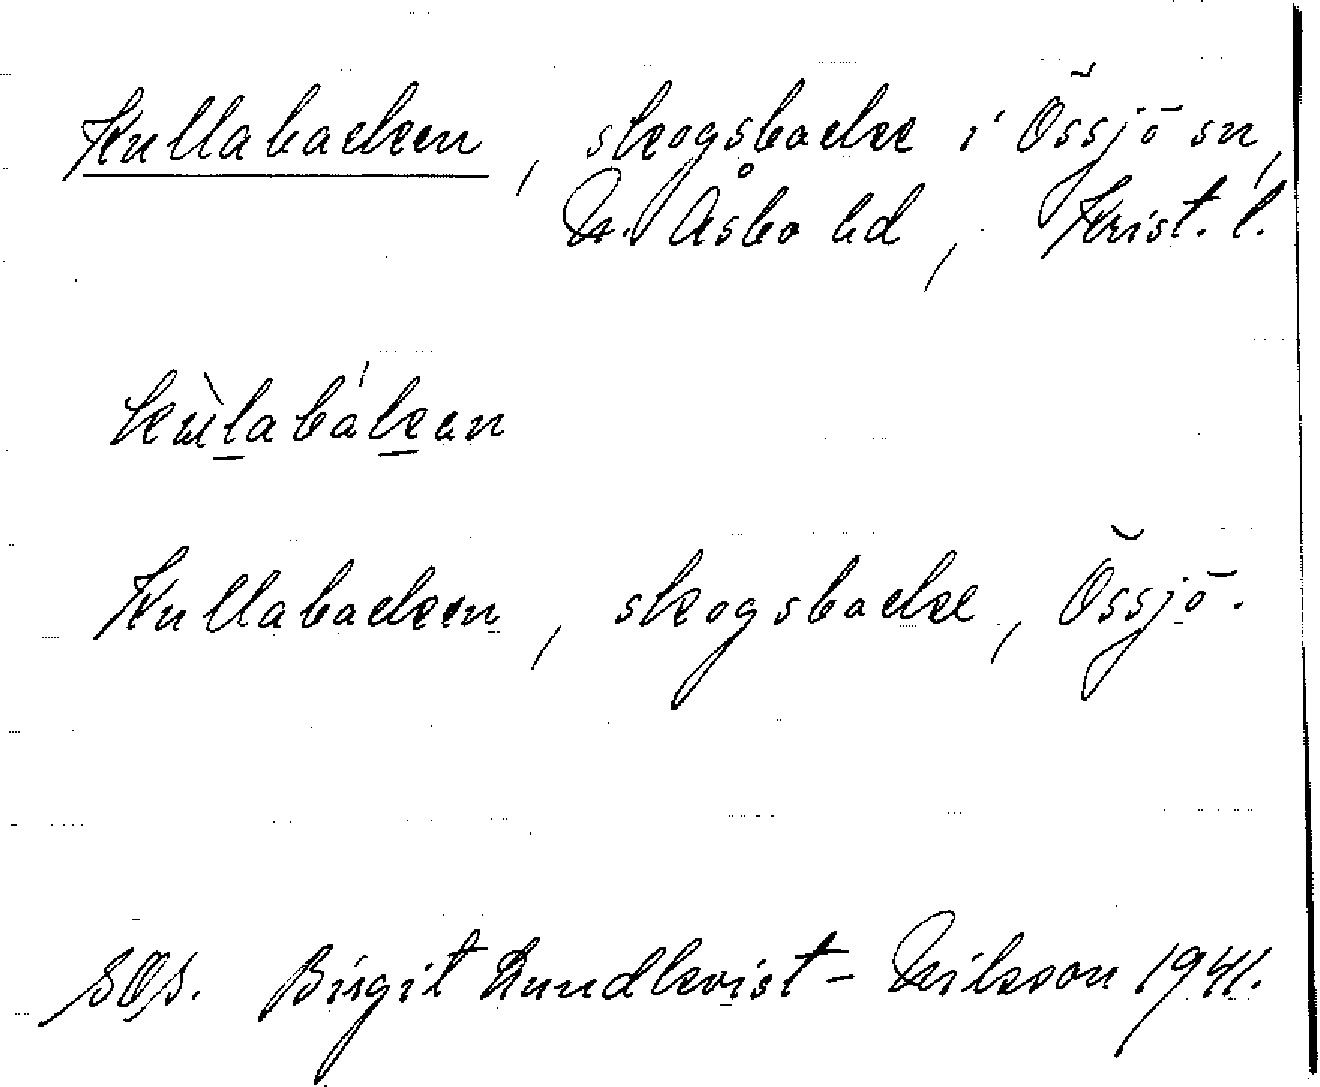 Kullabacken, skogsbacke i Össjö sn,
N. Åsbo hd, Krist. l.
kùlabákan
Kullabacken, skogsbacke, Össjö.
SOS. Birgit Lundkvist-Nilsson 1941.